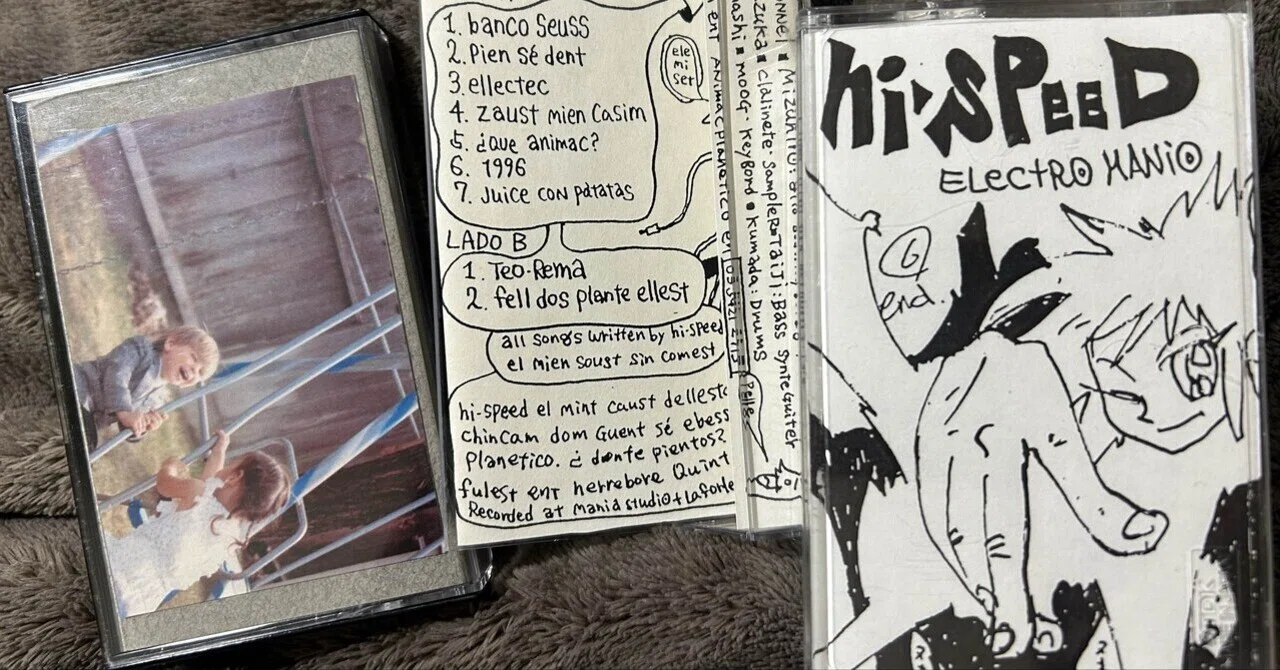 1. banco seuss
2. Pien sé dent
3. ellectec
4. zaust mien casim
5. ¿que animac?
6. 1996
7. Juice con patatas
LADO B
1. Teo-Rema
2. fell dos plante ellest
all songs written by hi-speed
el mien soust sin comest
hi-speed el mint caust dellesto
chincam dom Guent sé ebess
Planetico. ¿ donte pientos?
fulest ent herrebore Quint
Recorded at Mania studio + Laforte
ele
mi
ser
ent ANIMAC PLANETICO en
MOOG. KEYBORD ■ KUMADA: DRUMS
CLALINETE. SAMPLER ■ TAIJI: BASS SYNTEGUITER
MIZUHIRO:
Pelle
hi-SPEED
ELECTRO MANIO
G
end.